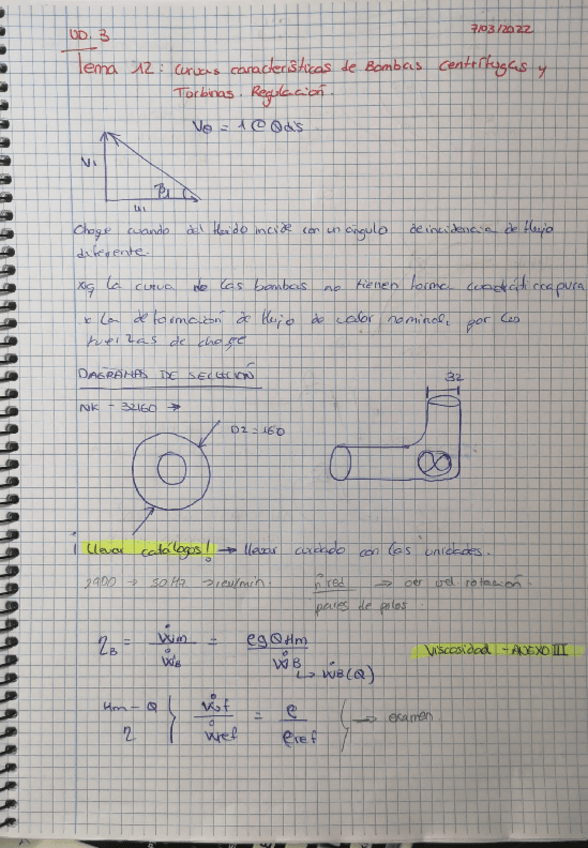 UD. 3
7/03/2022
Tema 12: Curvas características de Bombas Centrífugas y
Turbinas. Regulación.
V1
β1
u1
Choque cuando del fluido incide con un ángulo de incidencia de flujo
diferente.
xq la curva de las bombas no tienen forma cuadrática pura
x la deformación de flujo de valor nominal, por las
fuerzas de choque
DIAGRAMAS DE SELECCIÓN
NK - 32160 →
D2 = 160
32
¡Llevar catálogos! → llevar cuidado con las unidades.
2900 → 50Hz rev/min.
nred → rotación.
pares de polos.
ηB = Ẇm / ẆB = ρgQHm / ẆB
↳ ẆB(Q)
Viscosidad - ANEXO III
Hm - Q
η
Ẇf / Ẇref = ρ / ρref → examen